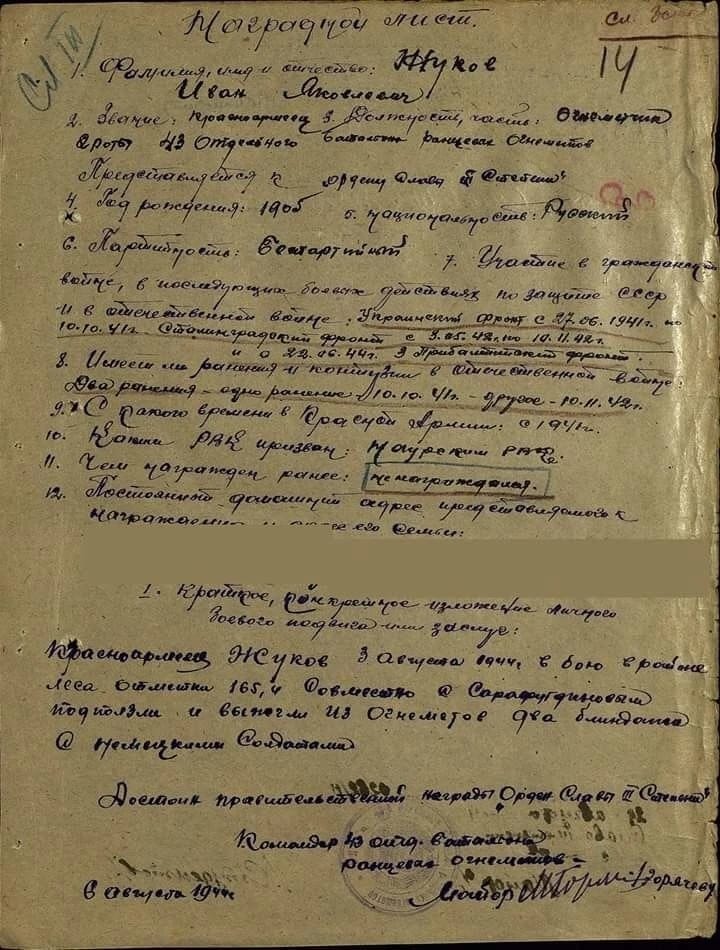 Наградной лист.
14
1. Фамилия, имя и отчество: Жуков
Иван Яковлевич
2. Звание: Красноармеец 3. Должность, часть: Огнеметчик
роты 43 Отдельного Баталиона ранцевых Огнеметов
Представляется к ордену Слава III Степени"
4. Год рождения: 1905 5. национальность: Русский
6. Партийность: Беспартийный 7. Участие в гражданской
войне, в последующих боевых действиях по защите СССР
и в отечественной войне: Украинский фронт с 27.06.1941г. по
10.10.41г. Сталинградский фронт с 3.05.42г. по 10.11.42г.
и с 22.06.44г. 3 Прибалтийский фронт.
8. Имеет ли ранения и контузии в отечественной войне:
Два ранения - одно ранение - 10.10.41г. - другое - 10.11.42г.
9. С какого времени в Красной Армии: с 1941г.
10. Каким РВК призван: Наурским РВК.
11. Чем награжден ранее: не награждался.
12. Постоянный домашний адрес представляемого к
награждению его семьи:
I. Краткое, конкретное изложение личного
боевого подвига или заслуг:
Красноармеец Жуков 3 Августа 1944г в бою в районе
леса отметка 165,4 Совместно с Сарафутдиновым
подползли и выжгли из Огнеметов два блиндажа
с немецкими Солдатами
Достоин правительственной награды "Орден Славы III Степени"
Командир 43 отд. баталиона
ранцевых огнеметов -
6 Августа 1944г Майор /Горячев/